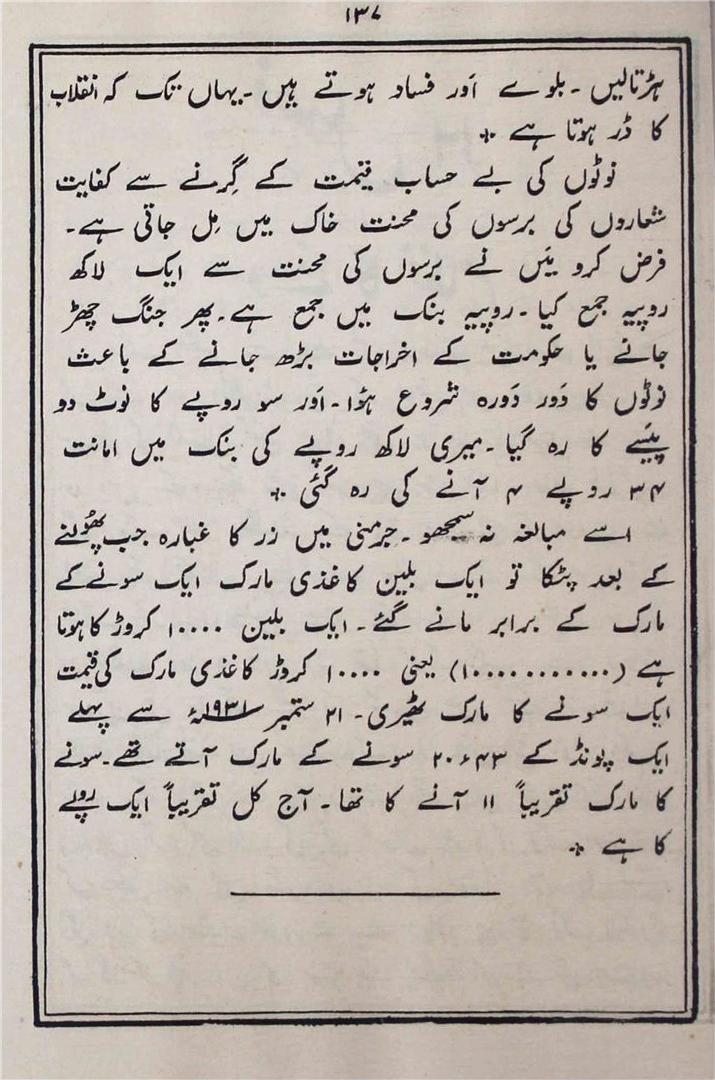 ۱۳۷
ہڑتالیں ۔ بلوے اَور فساد ہوتے ہیں ۔ یہاں تک کہ انقلاب
کا ڈر ہوتا ہے ٭
نوٹوں کی بے حساب قیمت کے گِرنے سے کفایت
شعاروں کی برسوں کی محنت خاک میں مِل جاتی ہے۔
فرض کرو میَں نے برسوں کی محنت سے ایک لاکھ
روپیہ جمع کیا ۔ روپیہ بنک میں جمع ہے۔ پھر جنگ چھڑ
جانے یا حکومت کے اخراجات بڑھ جانے کے باعث
نوٹوں کا دَور دَورہ شروع ہؤا۔ اَور سو روپے کا نوٹ دو
پیَسے کا رہ گیا ۔ میری لاکھ روپے کی بنک میں امانت
۳۴ روپے ۴ آنے کی رہ گئی ٭
اسے مبالغہ نہ سمجھو ۔ جرمنی میں زر کا غبارہ جب پھُولنے
کے بعد پٹکا تو ایک بلین کاغذی مارک ایک سونے کے
مارک کے برابر مانے گئے۔ ایک بلین ۱۰۰۰۰ کروڑ کا ہوتا
ہے (۱۰۰۰۰۰۰۰۰۰۰۰) یعنی ۱۰۰۰۰ کروڑ کاغذی مارک کی قیمت
ایک سونے کا مارک ٹھیری۔ ۲۱ ستمبر ۱۹۳۱ء سے پہلے
ایک پونڈ کے ۲۰۶۴۳ سونے کے مارک آتے تھے۔ سونے
کا مارک تقریباً ۱۱ آنے کا تھا۔ آج کل تقریباً ایک روپے
کا ہے ٭